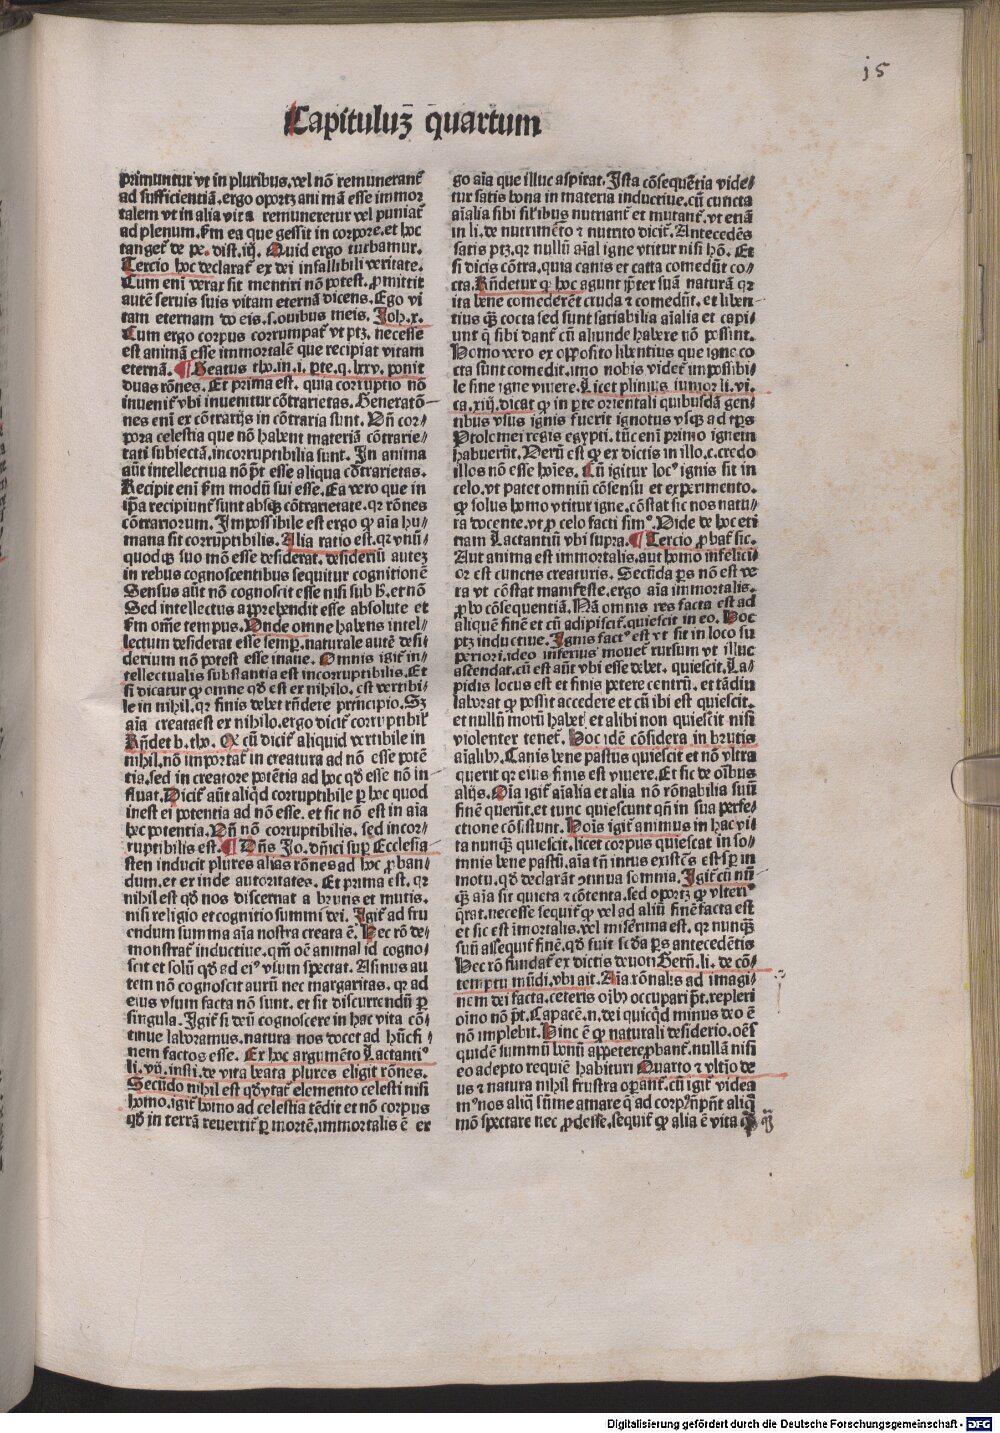 15
Capituluʒ q̄uartum
primuntur vt in pluribus.vel nō remunerant᷑
ad sufficientiā.ergo oportʒ ani mā esse immor
talem vt in alia vita remuneretur vel puniat᷑
ad plenum.ẜm ea que gessit in corpore.et hoc
tanget᷑ de pe. dist.iij. Quid ergo turbamur.
Tercio hoc declarat᷑ ex dei infallibili veritate.
Cum eni verax sit mentiri nō potest.ꝓmittit
autē seruis suis vitam eternā dicens.Ego vi
tam eternam do eis.s.ouibus meis. Joh.x.
Cum ergo corpus corrumpat᷑ vt ptʒ. necesse
est animā esse immortalē que recipiat vitam
eternā. ¶ Beatus tho.in.i. pte.q.lxxv. ponit
duas rōnes. Et prima est. quia corruptio nō
inuenit᷑ vbi inuenitur cōtrarietas. Generatō⸗
nes enī ex cōtrarijs in cōtraria sunt. Vn̄ cor⸗
pora celestia que nō habent materiā cōtrarie⸗
tati subiectā.incorruptibilia sunt. In anima
aūt intellectiua nō p̄t esse aliqua cōtrarietas.
Recipit enī ẜm modū sui esse. Ea vero que in
ip̄a recipiunt᷑ sunt absqꝫ cōtrarietate.qꝛ rōnes
cōtrariorum. Impossibile est ergo ꝙ aīa hu⸗
mana sit corruptibilis. Alia ratio est.qꝛ vnū⸗
quodqꝫ suo mō esse desiderat. desideriū auteʒ
in rebus cognoscentibus sequitur cognitionē
Sensus aūt nō cognoscit esse nisi sub h̄.et nō
Sed intellectus apprehendit esse absolute et
ẜm om̄e tempus. Vnde omne habens intel⸗
lectum desiderat esse semp̲. naturale autē desi⸗
derium nō potest esse inane. Omnis igit᷑ in⸗
tellectualis substantia est incorruptibilis. Et
si dicatur ꝙ omne qd̄ est ex nihilo. est vertibi⸗
le in nihil.qꝛ finis debet rn̄dere principio. Sʒ
aīa creata est ex nihilo.ergo dicit᷑ corruptibil᷑
Rn̄det b.tho. Qꝫ cū dicit᷑ aliquid vertibile in
nihil.nō importat᷑ in creatura ad nō esse potē
tia.sed in creatore potētia ad hoc qd̄ esse nō in⸗
fluat. Dicit᷑ aūt aliqd̄ corruptibile ꝑ hoc quod
inest ei potentia ad nō esse. et sic nō est in aīa
hec potentia. Vn̄ nō corruptibilis. sed incor⸗
ruptibilis est. ¶ Dn̄s Jo. dn̄ici sup̲ Ecclesia⸗
sten inducit plures alias rōnes ad hoc ꝓban⸗
dum.et ex inde autoritates. Et prima est. qꝛ
nihil est qd̄ nos discernat a brutis et mutis.
nisi religio et cognitio summi dei. Igit᷑ ad fru
endum summa aīa nostra creata ē. Hec rō de⸗
monstrat᷑ inductiue.qm̄ oē animal id cogno⸗
scit et solū qd̄ ad eiꝰ vsum spectat. Asinus au
tem nō cognoscit aurū nec margaritas. qꝛ ad
eius vsum facta nō sunt. et sit discurrendū ꝑ
singula. Igit᷑ si deū cognoscere in hac vita cō⸗
tinue laboramus.natura nos docet ad hūc fi⸗
nem factos esse. Ex hoc argumēto Lactantiꝰ
li.vij.insti.de vita beata plures eligit rōnes.
Secūdo nihil est qd̄ vtat᷑ elemento celesti nisi
homo.igit᷑ homo ad celestia tēdit et nō corpus
qd̄ in terrā reuertit᷑ ꝑ mortē.immortalis ē er
go aīa que illuc aspirat. Ista cōsequētia vide⸗
tur satis bona in materia inductiue.cū cuncta
aīalia sibi sil̓ibus nutriant᷑ et mutant᷑. vt etiā
in li.de nutrimēto ⁊ nutrito dicit᷑. Antecedēs
satis ptʒ.qꝛ nullū aīal igne vtitur nisi hō. Et
si dicis cōtra.quia canis et catta comedūt co⸗
cta. Rn̄detur ꝙ hoc agunt ꝓpter suā naturā qꝛ
ita bene comederēt cruda ⁊ comedūt.et liben⸗
tius qꝫ cocta sed sunt satiabilia aīalia et capi⸗
unt q̄ sibi dant᷑ cū aliunde habere nō possint.
Homo vero ex opposito libentius que igne co
cta sunt comedit.imo nobis videt᷑ impossibi⸗
le sine igne viuere. Licet plinius iunior li. vi.
ca.xiij.dicat ꝙ in p̲te orientali quibusdā gen⸗
tibus vsus ignis fuerit ignotus vsqꝫ ad tp̄s
Ptolemei regis egypti. tūc enī primo ignem
habuerūt. Verū est ꝙ ex dictis in illo.c.credo
illos nō esse hoīes. Cū igitur locꝰ ignis sit in
celo.vt patet omniū cōsensu et experimento.
ꝙ solus homo vtitur igne.cōstat sic nos natu⸗
ra docente.vt ꝓ celo facti simꝰ. Vide de hoc eti
nam Lactantiū vbi supra. ¶ Tercio ꝓbat᷑ sic.
Aut anima est immortalis.aut homo infelici⸗
or est cunctis creaturis. Secūda ps nō est ve
ra vt cōstat manifeste.ergo aīa immortalis.
ꝓbo cōsequentiā. Nā omnis res facta est ad
aliquē finē et cū adipiscit᷑.quiescit in eo. Hoc
ptʒ inductiue. Ignis factꝰ est vt sit in loco su
periori.ideo inferius mouet᷑ rursum vt illuc
ascendat.cū est aūt vbi esse debet. quiescit. La⸗
pidis locus est et finis petere centrū. et tādiu
laborat ꝙ possit accedere et cū ibi est quiescit.
et nullū motū habet᷑ et alibi non quiescit nisi
violenter tenet᷑. Hoc idē cōsidera in brutis
aīalibꝰ. Canis bene pastus quiescit et nō vltra
querit qꝛ eius finis est viuere. Et sic de oībus
alijs. Oīa igit᷑ aīalia et alia nō rōnabilia suū
finē querūt.et tunc quiescunt qn̄ in sua perfe⸗
ctione cōsistunt. Hoīs igit᷑ animus in hac vi⸗
ta nunqꝫ quiescit.licet corpus quiescat in so⸗
mnis bene pastū.aīa tn̄ intus existēs est sp̲ in
motu.qd̄ declarāt ꝯtinua somnia. Igit᷑ cū nū⸗
qꝫ aīa sit quieta ⁊ cōtenta.sed oportʒ ꝙ vlteriꝰ
q̄rat.necesse sequit᷑ ꝙ vel ad aliū finē facta est
et sic est īmortalis.vel miserrima est.qꝛ nunqꝫ
suū assequit᷑ finē.qd̄ fuit scd̄a ps antecedētis
Hec rō fundat᷑ ex dictis deuoti Bern̄.li. de cō⸗
temptu mūdi.vbi ait. Aīa rōnalis ad imagi⸗
nem dei facta.ceteris oībꝰ occupari p̄t. repleri
oīno nō p̄t. Capacē.n.dei quicqd̄ minus deo ē
nō implebit. Hinc ē ꝙ naturali desiderio.oēs
quidē summū bonū appetere ꝓbant᷑.nullā nisi
eo adepto requiē habituri Quarto ⁊ vltīo de
us ⁊ natura nihil frustra operant᷑.cū igit᷑ videa
mꝰ nos aliq̄ sūme amare q̄ ad corpꝰ n̄ p̄nt aliq̄
mō spectare nec ꝓdesse.sequit᷑ ꝙ alia ē vita
Digitalisierung gefördert durch die Deutsche Forschungsgemeinschaft - DFG